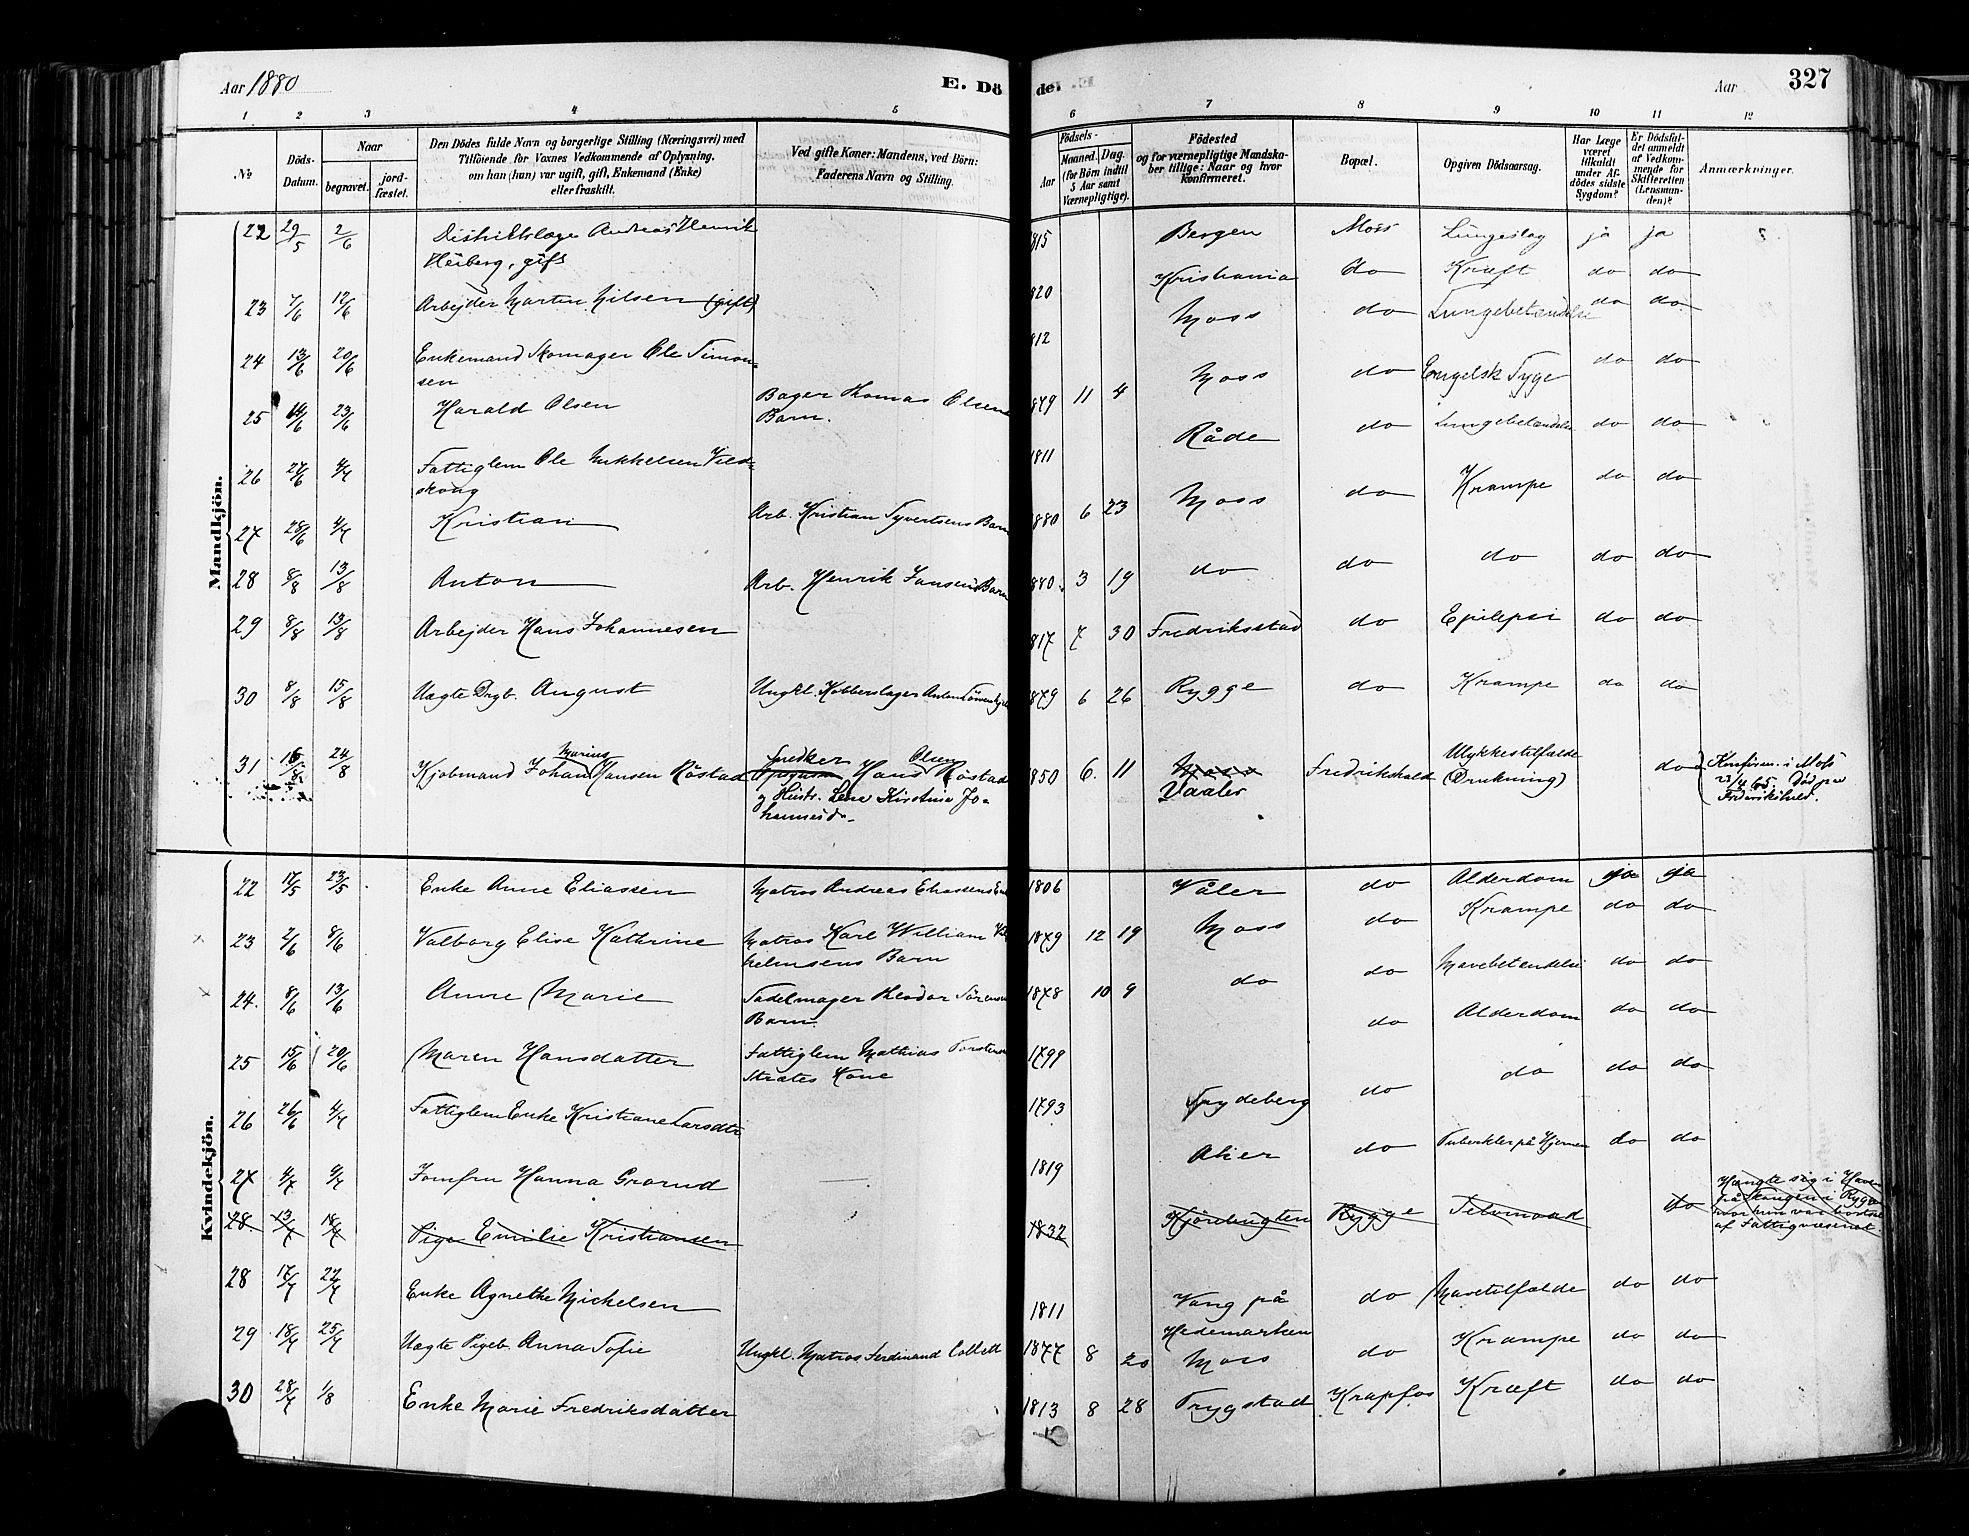 Aar 1880
E. Dö
de.
Aar
327
1 2 3 4 5 6 7 8 9 10 11 12
No
Döds-Datum.
Naar
begravet.
jord-fæstet.
Den Dödes fulde Navn og borgerlige Stilling (Næringsvei) med
Tilföiende for Voxnes Vedkommende af Oplysning,
om han (hun) var ugift, gift, Enkemand (Enke)
eller fraskilt.
Ved gifte Koner: Mandens, ved Börn:
Faderens Navn og Stilling.
Födsels-
Aar
Maaned. Dag.
(for Börn indtil
5 Aar samt
Værnepligtige).
Födested
og for værnepligtige Mandska-
ber tillige: Naar og hvor
konfirmeret.
Bopæl.
Opgiven Dödsaarsag.
Har Læge
været
tilkaldt
under Af-
dödes sidste
Sygdom?
Er Dödsfal-
det anmeldt
af Vedkom-
mende for
Skifteretten
(Lensman-
den)?
Anmærkninger.
Mandkjön.
22 29/5 2/6 Distriktslæge Andreas Henrik
Heiberg, gift 815 Bergen Moss Lungeslag ja ja
23 7/6 12/6 Arbejder Martin Nilsen (gift) 820 Kristiania do Kræft do do
24 13/6 20/6 Enkemand Skomager Ole Simon-
sen 812 Moss do Lungebetændelse do do
25 14/6 23/6 Harald Olsen Bager Thomas Olsens
Barn. 879 11 4 Moss do Engelsk Syge do do
26 27/6 4/7 Fattiglem Ole Mikkelsen Vild-
skoug 1811 Råde do Lungebetændelse do do
27 28/6 4/7 Kristian Arb. Kristian Syvertsens Barn 1880 6 23 Moss do Krampe do do
28 8/8 13/8 Anton Arb. Henrik Jansens Barn 880 3 19 do do do do do
29 8/8 13/8 Arbejder Hans Johannesen 817 7 30 Fredriksstad do Epilepsi do do
30 8/8 15/8 Uægte Drgb. August Ungkl. Kobberslager Anton 1879 6 26 Rygge do Krampe do do
31 16/8 24/8 Kjøbmand Johan Marius Hansen Röstad Snedker Hans Olsen Röstad
og Hustr. Lene Kirstine Jo-
hannesd. 1850 6. 11 Moss
Vaaler Fredrikshald Ulykkestilfælde
(Drukning) do Konfirm. i Moss
23/4 65. Död paa
Fredrikshald.
Kvindekjön.
22 17/5 23/5 Enke Anne Eliassen Matros Andreas Eliassens Enke 1806 Våler do Alderdom ja ja
23 2/6 8/6 Valborg Elise Kathrine Matros Karl William Vil
helmsens Barn 1879 12 19 Moss do Krampe do do
24. 8/6 13/6 Anne Marie Sadelmager Theodor Sörensens
Barn 1878 10 9 do do Mavebetændelse do do
25 15/6 20/6 Maren Hansdatter Fattiglem Mathias Torstensen
Strætes Kone 1799 do Alderdom do do
26 26/6 4/7 Fattiglem Enke Kristiane Larsdtr 1793 Spydeberg do do do do
27 4/7 9/7 Jomfru Hanna Grarud 1819 Aker do Tuberkler på Hjernen do do
28 13/7 18/7 Pige Emilie Kristiansen 1832 Rygge Selvmord do Hængte sig i Haven
på Haugen i Rygge
hvor hun var bortsat
af Fattigvæsenet.
28 17/7 22/7 Enke Agnethe Mickelsen 1811 Vang på
Hedemarken do Mavetilfælde do do
29 18/7 25/7 Uægte Pigeb. Anna Sofie Ungkl. Matros Ferdinand Collett 1877 8 20 Moss do Krampe do do
30 28/7 1/8 Enke Marie Fredriksdatter 1813 8 28 Trygstad Krapfos Kræft do do